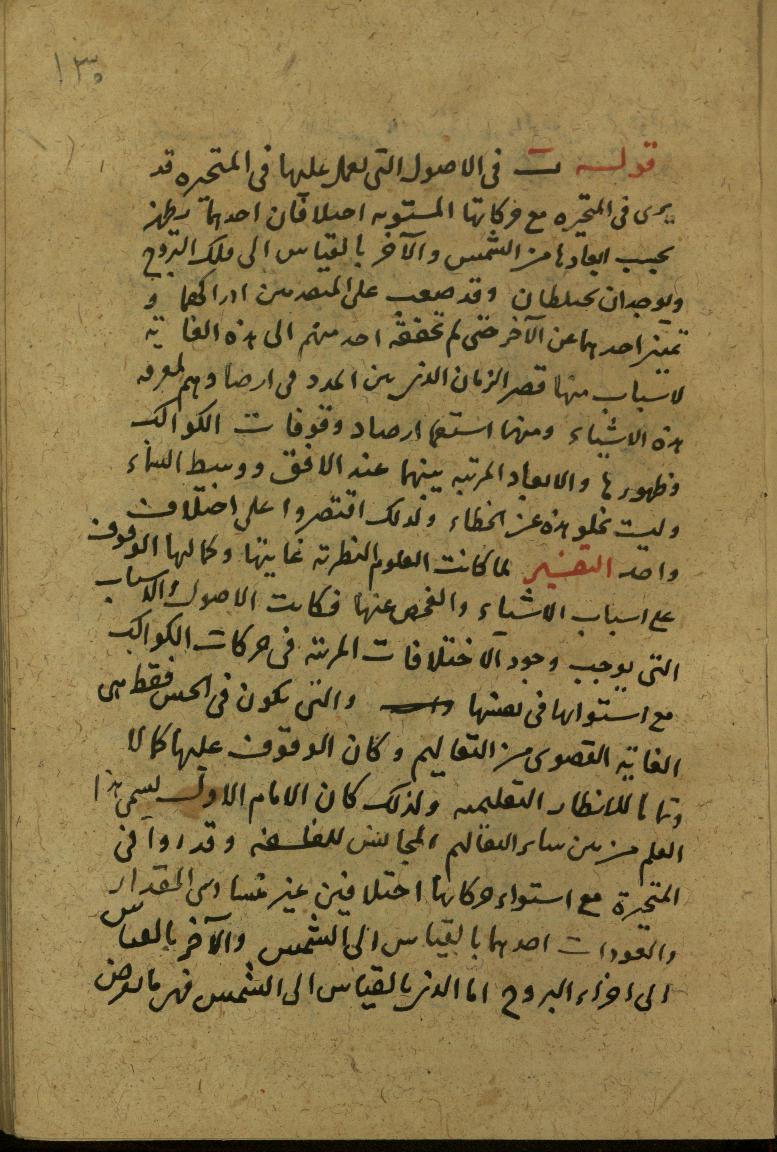 ١٣٠
قوله ت فى الاصول التى يعمل عليها فى المتحيره قد
يرى فى المتحيره مع حركاتها المستويه اختلافان احدهما يظهر
بحسب ابعادها من الشمس والآخر بالقياس الى فلك البروج
ويوجدان يختلطان وقد صعب على المتقدمين ادراكهما و
تميز احدهما عن الآخر حتى لم تحققه احد منهم الى هذه الغا ية
لاسباب منها قصر الزمان الذى بين المدد فى ارصادهم لمعرفه
هذه الاشياء ومنها استعما ارصاد وقوفات الكواكب
وظهورها والابعاد المرتبه بينها عند الافق ووسط السماء
وليت تخلو هذه عن الخطاء ولذلك اقتصروا على اختلاف
واحد التفسير لما كانت العلوم النظرية غايتها وكمالها الوقوف
على اسباب الاشياء والفحص عنها فكانت الاصول والاسباب
التى يوجب وجود الاختلافات المرئية فى حركات الكواكب
مع استوائها فى نفسها والتى تكون فى الحس فقط هى
الغاية القصوى من التعاليم وكان الوقوف عليها كمالا
وتماما للانظار التعليميه ولذلك كان الامام الاول يسمى هذا
العلم من بين سائر التعاليم المجانس للفلسفه وقد راوا فى
المتحيرة مع استواء حركاتها اختلافين غير متساوى المقدار
والعودات احدهما بالقياس الى الشمس والآخر بالقياس
الى اجزاء البروج اما الذى بالقياس الى الشمس فهو ما يعرض